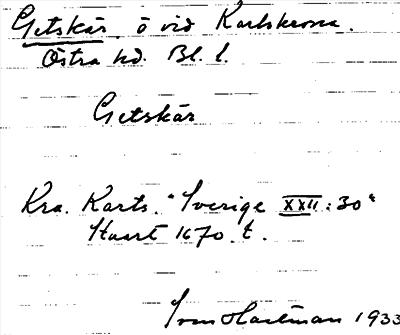 Getskär, ö vid Karlskrona.
Östra hd. Bl. l.
Getskär
Kra. Karts. "Sverige XXII:30"
Staart 1670 t.
Hartman 1933